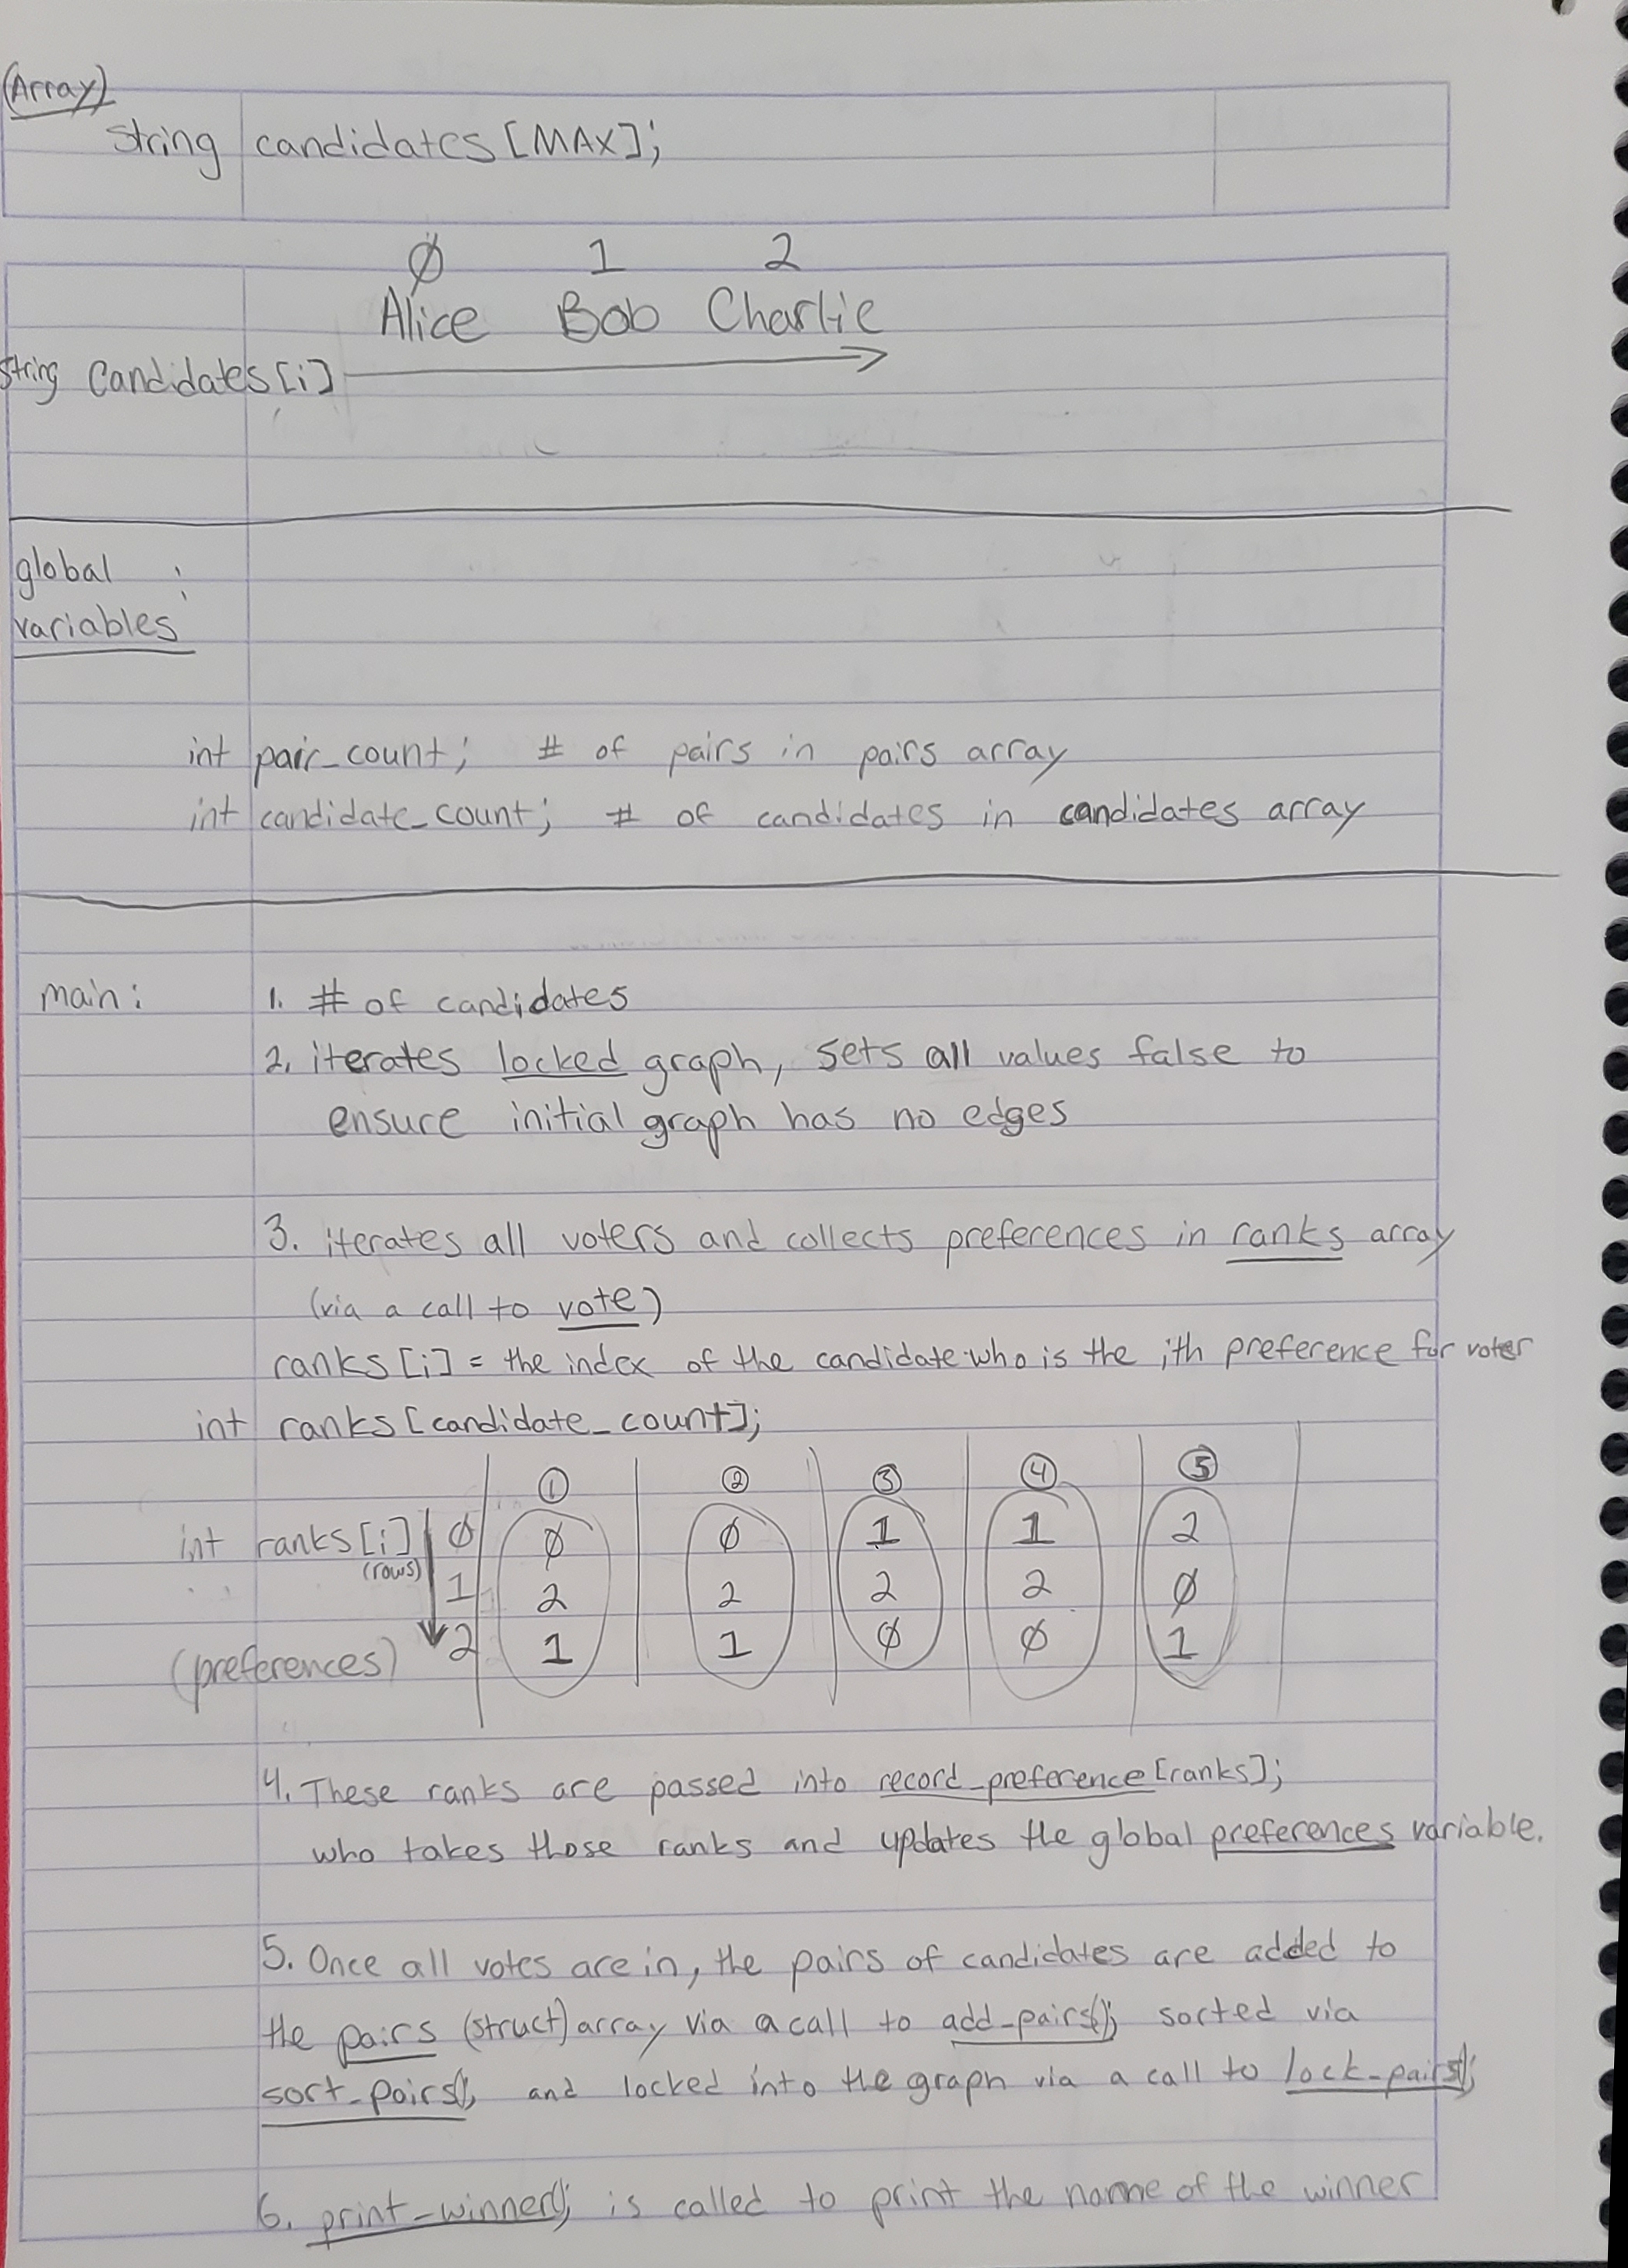 (Array)
string candidates [MAX];
Ø 1 2
Alice Bob Charlie
string Candidates[i]
global :
variables
int pair_count; # of pairs in pairs array
int candidate_count; # of candidates in candidates array
main: 1. # of candidates
2. iterates locked graph, sets all values false to
ensure initial graph has no edges
3. iterates all voters and collects preferences in ranks array
(via a call to vote)
ranks [i] = the index of the candidate who is the ith preference for voter
int ranks [candidate_count];
① ② ③ ④ ⑤
int ranks [i] Ø Ø Ø 1 1 2
(rows) 1 2 2 2 2 Ø
(preferences) 2 1 1 Ø Ø 1
4. These ranks are passed into record_preference [ranks];
who takes those ranks and updates the global preferences variable.
5. Once all votes are in, the pairs of candidates are added to
the pairs (struct) array via a call to add_pairs(); sorted via
sort_pairs(); and locked into the graph via a call to lock_pairs();
6. print_winner(); is called to print the name of the winner